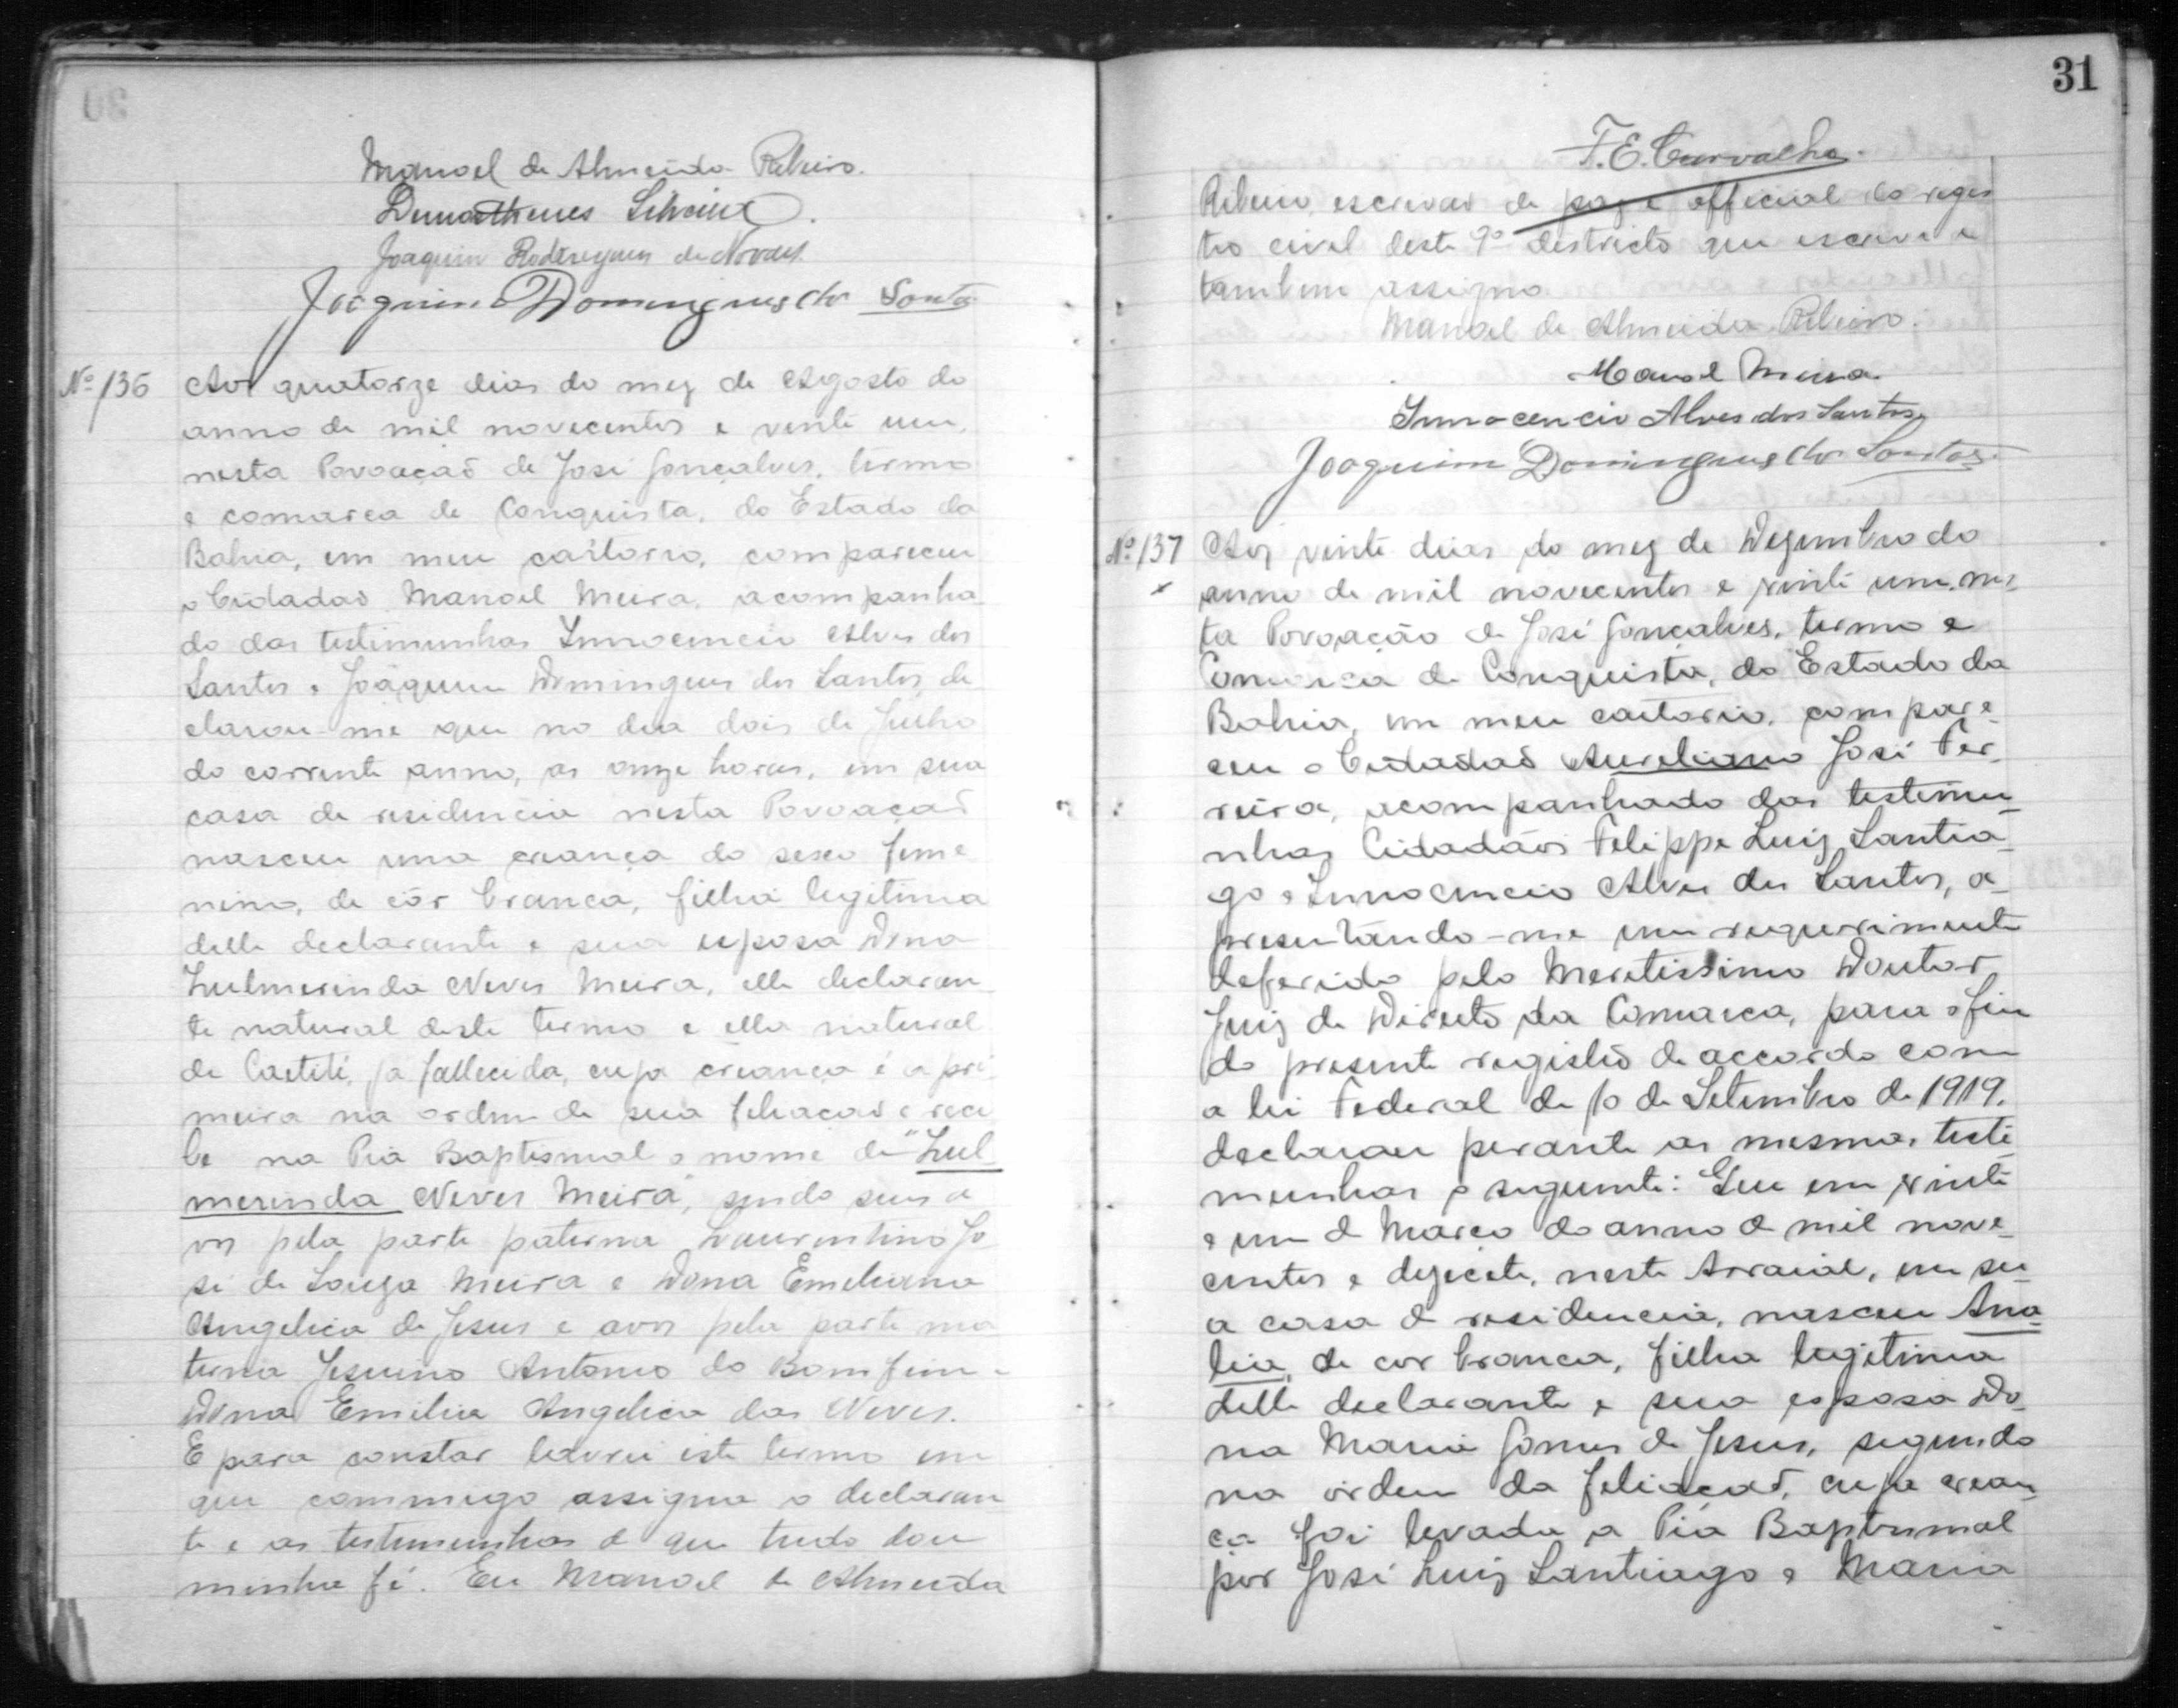 Manoel de Almeida Ribeiro.
Demosthenes Silveira.
Joaquim Rodrigues de Novaes
Joaquim Domingues dos Santos
Nº 136
Aos quatorze dias do mez de Agosto do
anno de mil novecentos e vinte um,
nesta Povoação de José Gonçalves, termo
e comarca de Conquista, do Estado da
Bahia, em meu cartorio, compareceu
o Cidadão Manoel Meira, acompanha
do das testimunhas Innocencio Alves dos
Santos e Joaquim Domingues dos Santos, de
clarou-me que no dia dois de Julho
do corrente anno, as onze horas, em sua
casa de residencia nesta Povoação
nasceu uma creança do sexo feme
nino, de côr branca, filha legitima
delle declarante e sua esposa Dona
Zulmerinda Neves Meira, elle declaran
te natural deste termo e ella natural
de Caetité, já fallecida, cuja creança é a pri
meira na ordem de sua filiação e rece
be na Pia Baptismal o nome de "Zul
merinda Neves Meira", sendo seus a
vos pela parte paterna Laurentino Jo
sé de Souza Meira e Dona Emeliana
Angelica de Jesus e avos pela parte ma
terna Jesuino Antonio do Bomfim e
Dona Emilia Angelica das Neves.
E para constar lavrei este termo em
que commigo assigna o declaran
te e as testimunhas d que tudo dou
minha fé. Eu Manoel de Almeida
31
F. E. Carvalho.
Ribeiro, escrivão de paz e official do regis
tro civel deste 9º districto que escrevi e
tambem assigno.
Manoel de Almeida Ribeiro.
Manoel Meira.
Innocencio Alves dos Santos
Joaquim Domingues dos Santos
Nº 137
Aos vinte dias do mez de Dezembro do
anno de mil novecentos e vinte um, nes
ta Povoação de José Gonçalves, termo e
Comarca de Conquista, do Estado da
Bahia, em meu cartorio, compare
ceu o Cidadão Aureliano José Fer
reira, acompanhado das testimu
nhas Cidadãos Felippe Luiz Santia
go e Innocencio Alves dos Santos, a
presentando-me um requerimento
deferido pelo Meretissimo Doutor
Juiz de Direito da Comarca, para o fim
do presente registro de accordo com
a lei Federal de 10 de Setembro de 1919.
declarou perante as mesmas teste
munhas o seguinte: Que em vinte
e um d Março do anno d mil nove
centos e dezecete, neste Arraial, em su
a casa d residencia, nasceu Ana
lia, de cor branca, filha legitima
delle declarante e sua esposa Do
na Maria Gomes de Jesus, segunda
na ordem da filiação, cuja crean
ça foi levada a Pia Baptismal
por José Luiz Santiago e Maria